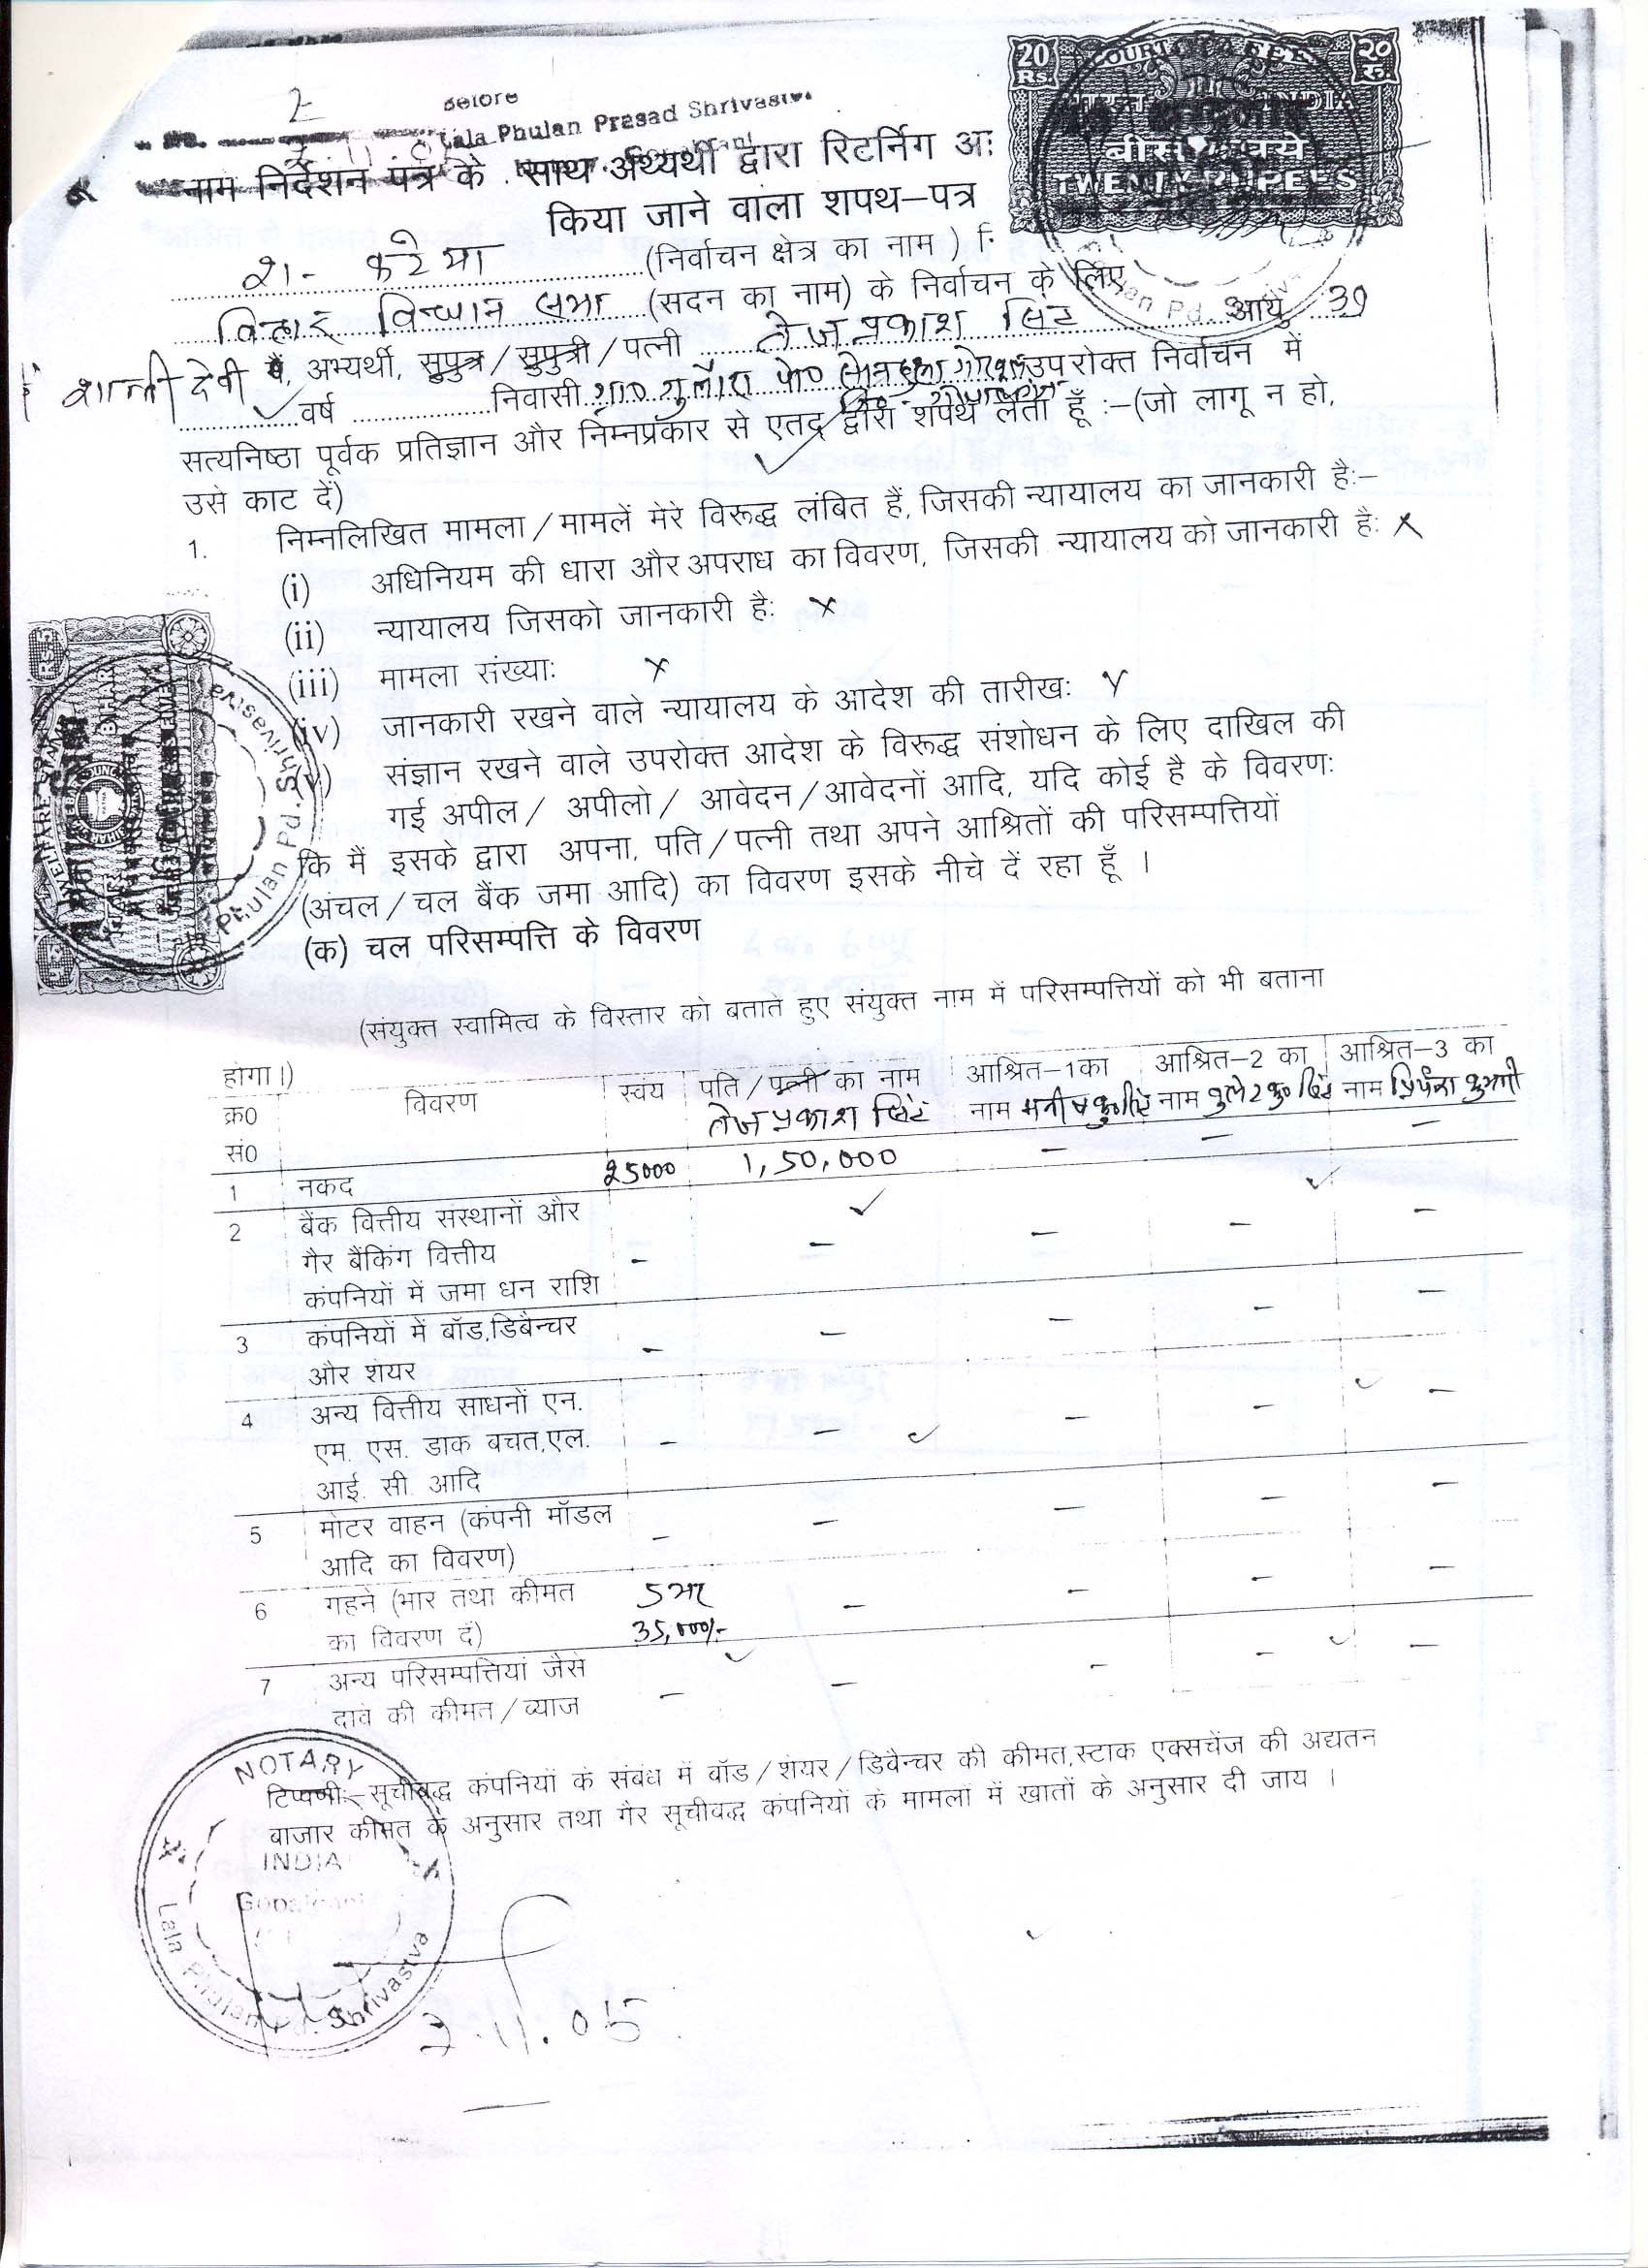 2
Before
No. Lala Phulan Prasad Shrivastva
नाम निर्देशन पत्र के साथ अभ्यर्थी द्वारा रिटर्निंग अ
किया जाने वाला शपथ–पत्र
20 Rs. COURT FEE २० रु.
भारत INDIA
बीस रुपये
TWENTY RUPEES
(निर्वाचन क्षेत्र का नाम )
बिहार विधान सभा (सदन का नाम) के निर्वाचन के लिए
शान्ती देवी मैं, अभ्यर्थी, सुपुत्र/सुपुत्री/पत्नी तेज प्रकाश सिंह आयु 39
वर्ष निवासी उपरोक्त निर्वाचन में
सत्यनिष्ठा पूर्वक प्रतिज्ञान और निम्नप्रकार से एतद् द्वारा शपथ लेता हूँ :–(जो लागू न हो,
उसे काट दें)
1. निम्नलिखित मामला/मामलें मेरे विरूद्ध लंबित हैं, जिसकी न्यायालय का जानकारी है:–
(i) अधिनियम की धारा और अपराध का विवरण, जिसकी न्यायालय को जानकारी है: x
(ii) न्यायालय जिसको जानकारी है: x
(iii) मामला संख्या: x
(iv) जानकारी रखने वाले न्यायालय के आदेश की तारीख: x
(v) संज्ञान रखने वाले उपरोक्त आदेश के विरूद्ध संशोधन के लिए दाखिल की
गई अपील/ अपीलो/ आवेदन/आवेदनों आदि, यदि कोई है के विवरण:
कि मैं इसके द्वारा अपना, पति/पत्नी तथा अपने आश्रितों की परिसम्पत्तियों
(अंचल/चल बैंक जमा आदि) का विवरण इसके नीचे दें रहा हूँ ।
(क) चल परिसम्पत्ति के विवरण
WELFARE STAMP
BIHAR
Phulan Pd. Shrivastva
(संयुक्त स्वामित्व के विस्तार को बताते हुए संयुक्त नाम में परिसम्पत्तियों को भी बताना
होगा।)
क्र0 सं0 विवरण स्वंय पति/पत्नी का नाम तेज प्रकाश सिंह आश्रित–1का नाम आश्रित–2 का नाम आश्रित–3 का नाम
1 नकद 25000 1,50,000 – – –
2 बैंक वित्तीय संस्थानों और – – – – –
गैर बैंकिंग वित्तीय
कंपनियों में जमा धन राशि
3 कंपनियों में बॉड,डिबैन्चर – – – – –
और शेयर
4 अन्य वित्तीय साधनों एन. – – – – –
एम. एस. डाक बचत,एल.
आई. सी. आदि
5 मोटर वाहन (कंपनी मॉडल – – – – –
आदि का विवरण)
6 गहने (भार तथा कीमत 5 भर – – – –
का विवरण दें) 35,000/-
7 अन्य परिसम्पत्तियां जैसे – – – – –
दावे की कीमत/व्याज
टिप्पणी:–सूचीवद्ध कंपनियों के संबंध में बॉड/शेयर/डिबैन्चर की कीमत,स्टाक एक्सचेंज की अद्यतन
बाजार कीमत के अनुसार तथा गैर सूचीवद्ध कंपनियों के मामलों में खातों के अनुसार दी जाय ।
NOTARY
INDIA
Lala Phulan Pd. Shrivastva
3.11.05